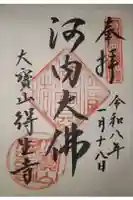 奉拝
令和八年
月十八日
河内大佛
大寶山得生寺